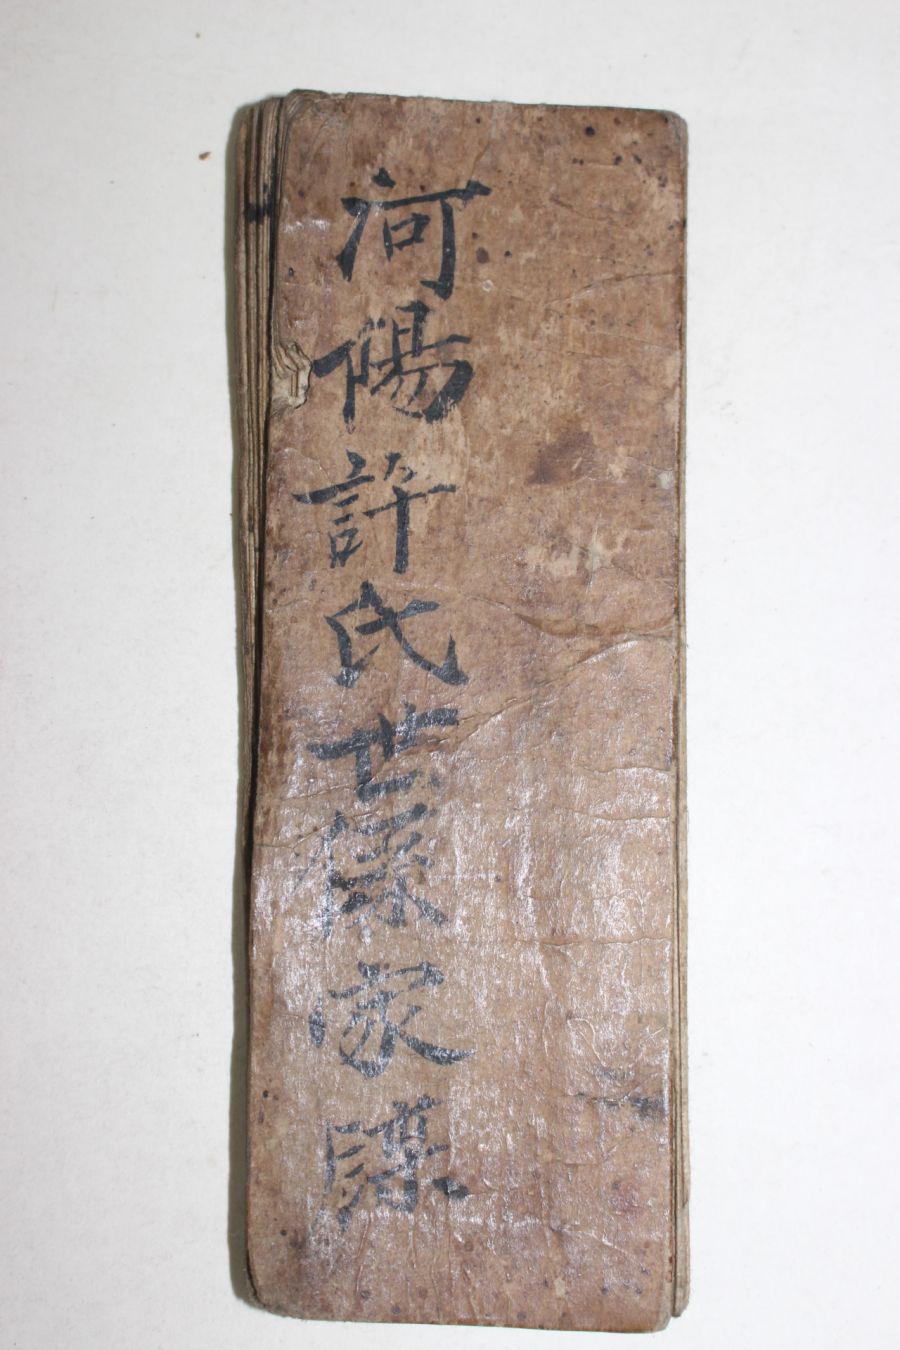 河陽許氏世係家牒